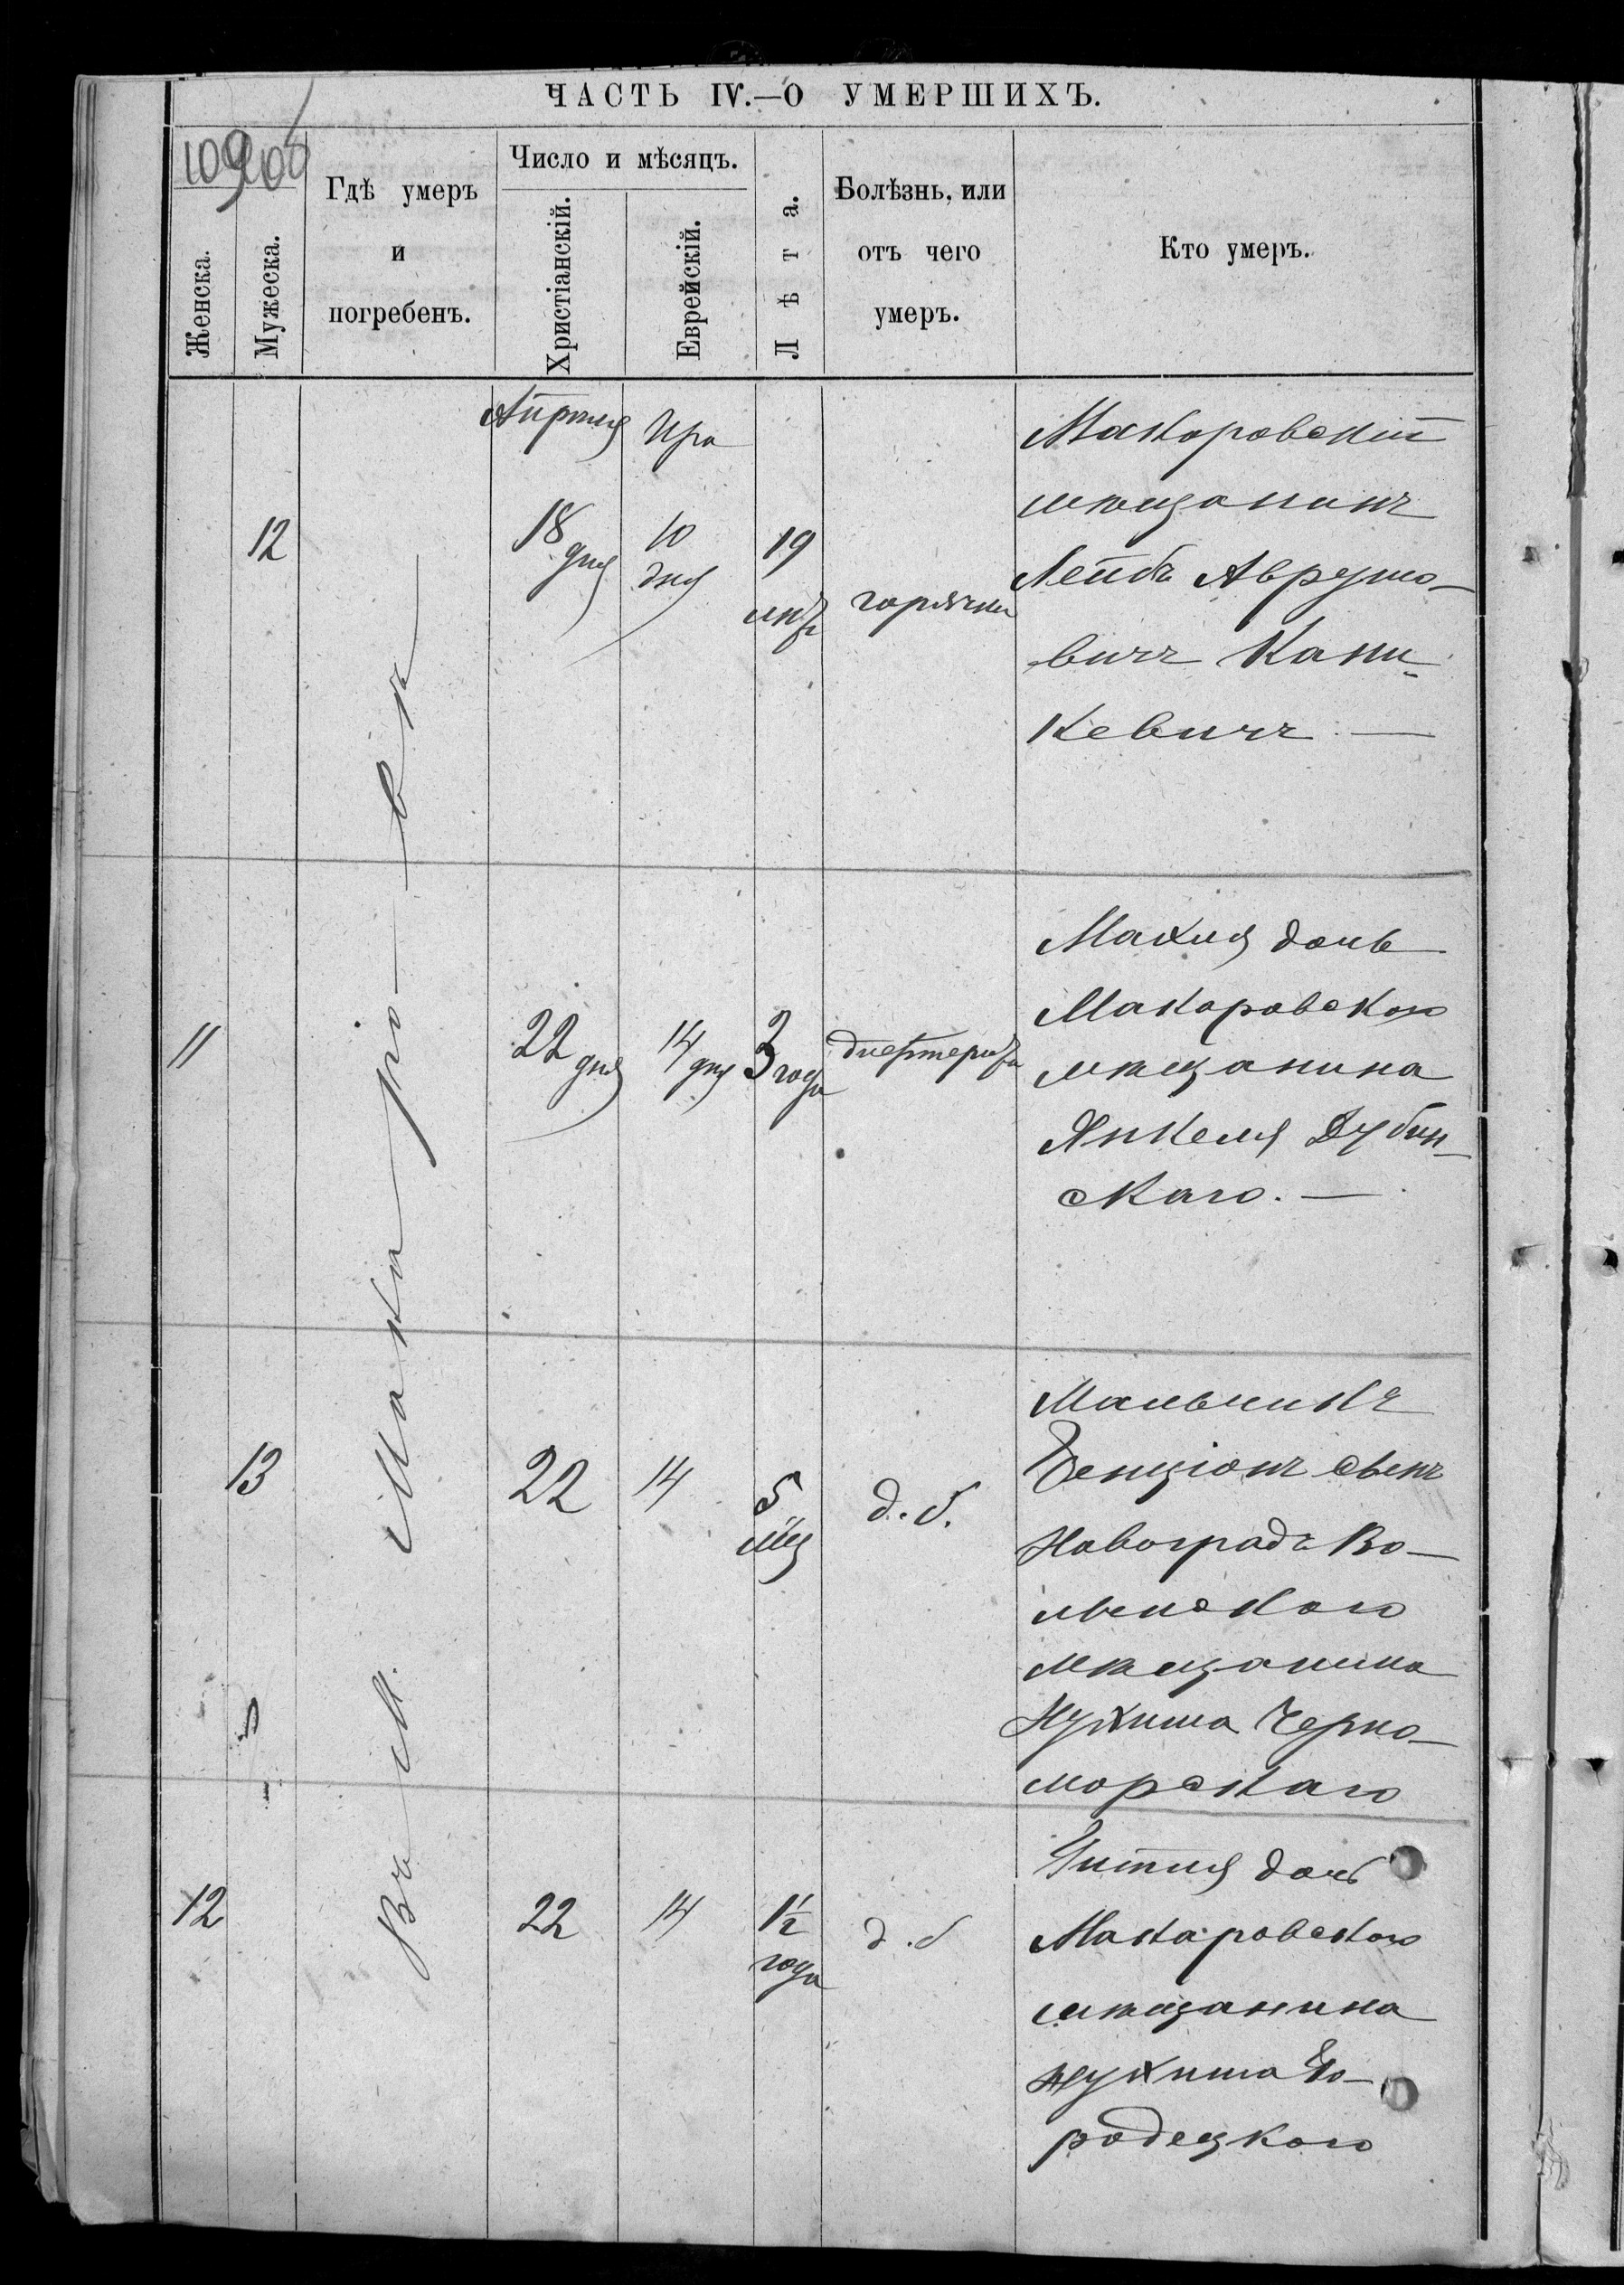 ЧАСТЬ IV.—О УМЕРШИХЪ.
Женска.
Мужеска.
Гдѣ умеръ
и
погребенъ.
Число и мѣсяцъ.
Христіанскій.
Еврейскій.
Лѣта.
Болѣзнь, или
отъ чего
умеръ.
Кто умеръ.
Въ М. Макаровѣ
Апрѣля
Ира
12
18 дня
10 дня
19 лѣтъ
горячки
Макаровскій
мѣщанинъ
Лейбъ Аврумо-
вичъ Кани-
кевичъ —
11
22 дня
14 дня
3 года
диѳтерита
Махля дочь
Макаровского
мѣщанина
Янкеля Дубин-
скаго. —
13
22
14
5 мѣц
д. б.
Мальчикъ
Бенціонъ сынъ
Новоградъ Во-
лынского
мѣщанина
Нухима Черно-
морскаго
12
22
14
1½ года
д. б
Гитля дочь
Макаровского
мѣщанина
Нухима Го-
родецкого